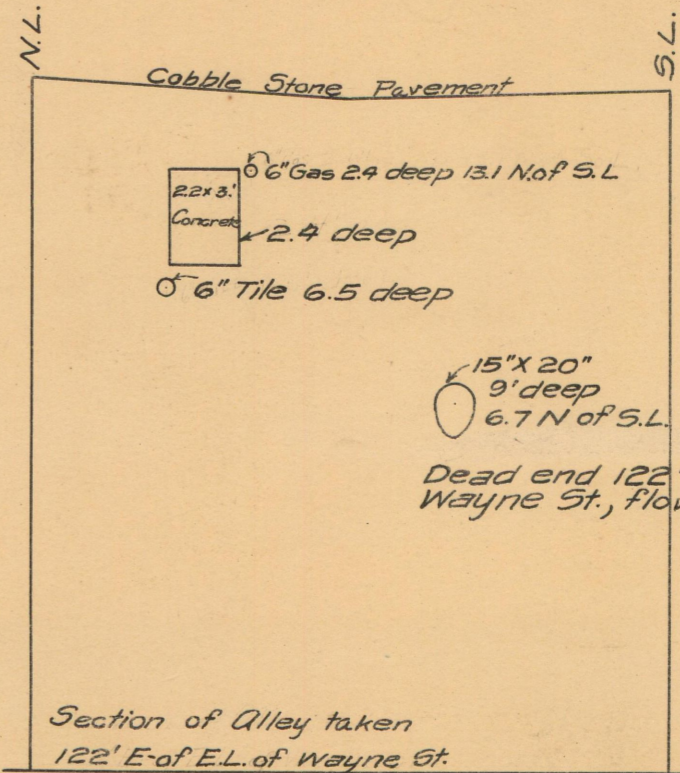 N.L.
S.L.
Cobble Stone Pavement
6" Gas 2.4 deep 13.1 N.of S.L
2.2 x 3.'
Concrete
2.4 deep
6" Tile 6.5 deep
15" X 20"
9' deep
6.7 N of S.L.
Dead end 122
Wayne St.,
Section of Alley taken
122' E-of E.L. of Wayne St.